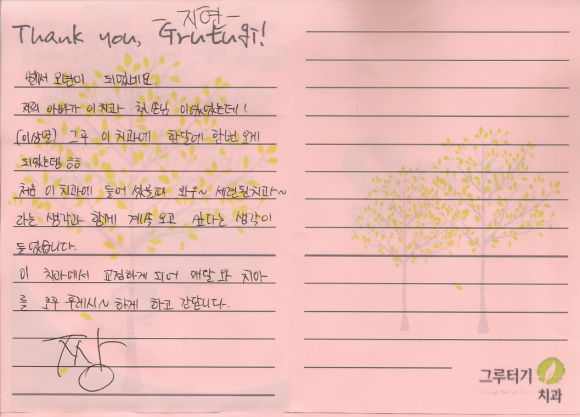 -지연-
Thank you, Grutugi!
벌써 오년이 되었네요.
저의 아빠가 이 치과 첫 손님 이었었는데!
그후 이 치과에 한달에 한번 오게
되었는데 ㅎㅎ
처음 이 치과에 들어 섰을때 와우~ 세련된치과~
라는 생각과 함께 계속 오고 싶다는 생각이
들었습니다.
이 치과에서 교정하게 되어 매달 와 치아
를 모두 후레시~ 하게 하고 간답니다.
짱
그루터기
치과